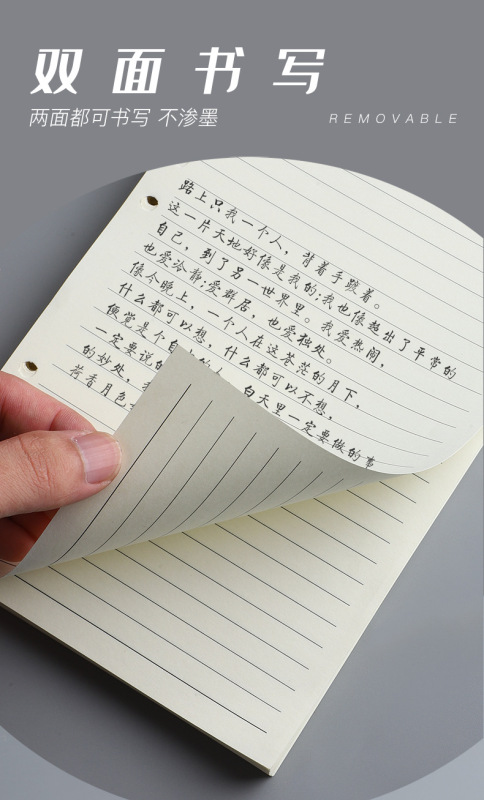 双面书写
两面都可书写 不渗墨
REMOVABLE
路上只我一个人，背着手踱着。
这一片天地好像是我的;我也像超出了平常的
自己，到了另一世界里。我爱热闹，
也爱冷静;爱群居，也爱独处。
像今晚上，一个人在这苍茫的月下，
什么都可以想，什么都可以不想，
便觉是个自 的人。白天里一定要做的事
一定要说的
的妙处，我
荷香月色